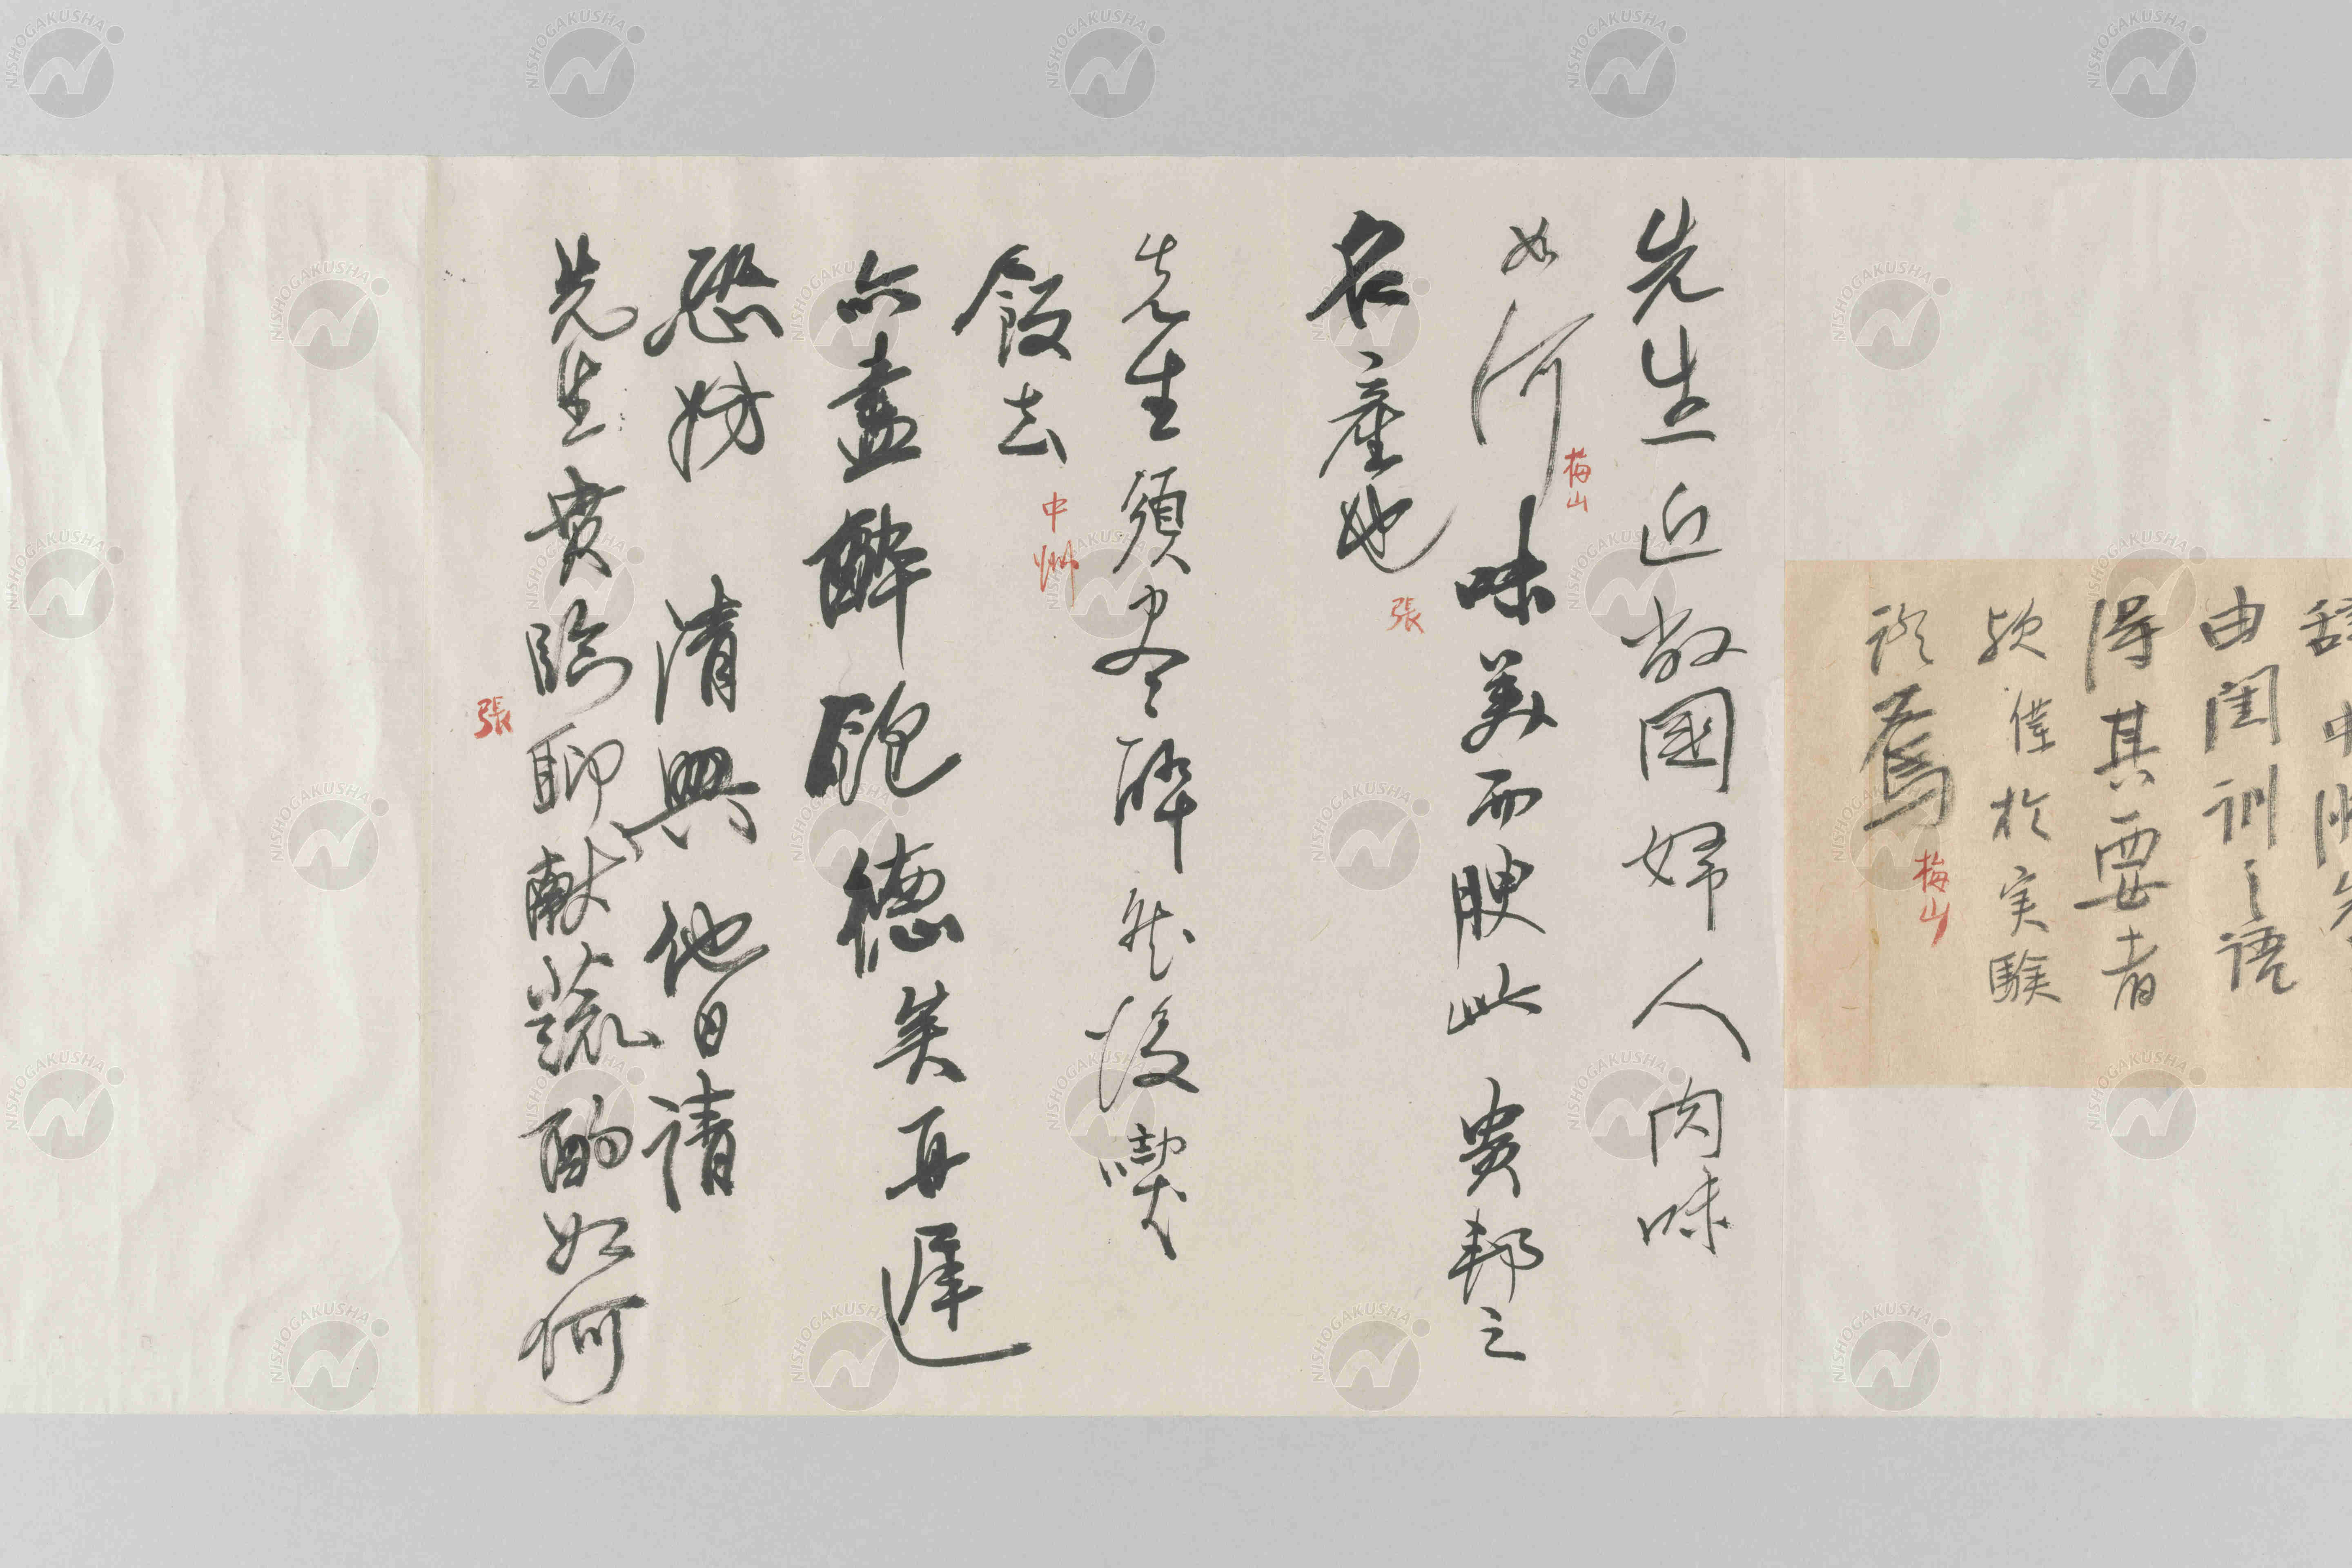 辞中
由閨訓之語
得其要者
欤僅於実験
焉
梅山
先生近敝國婦人肉味
如何
梅山
味美而腴此貴邦之
名産也
張
先生須尽酔然後喫
飯去
中洲
亦盡醉飽德矣再遲
恐妨清興他日請
先生貴臨聊献蔬酌如何
張
NISHOGAKUSHA